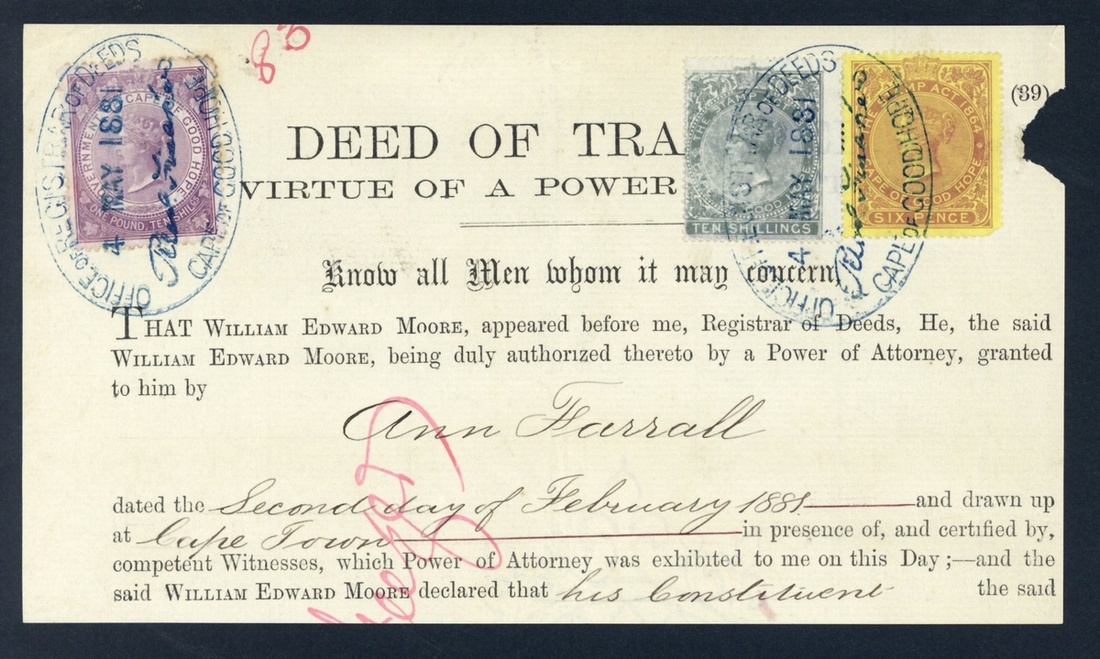 83
(39)
DEED OF TRA
VIRTUE OF A POWER
Know all Men whom it may concern
THAT WILLIAM EDWARD MOORE, appeared before me, Registrar of Deeds, He, the said
WILLIAM EDWARD MOORE, being duly authorized thereto by a Power of Attorney, granted
to him by
Ann Farrall
dated the Second day of February 1881 and drawn up
at Cape Town in presence of, and certified by,
competent Witnesses, which Power of Attorney was exhibited to me on this Day;—and the
said WILLIAM EDWARD MOORE declared that his Constituent the said
OFFICE OF REGISTRAR OF DEEDS
CAPE OF GOOD HOPE
4 MAY 1881
GOVERNMENT CAPE OF GOOD HOPE
ONE POUND, TEN SHILGS
OFFICE REGISTRAR OF DEEDS
CAPE OF GOOD HOPE
4 MAY 1881
TEN SHILLINGS
STAMP ACT 1864
CAPE OF GOOD HOPE
SIX PENCE